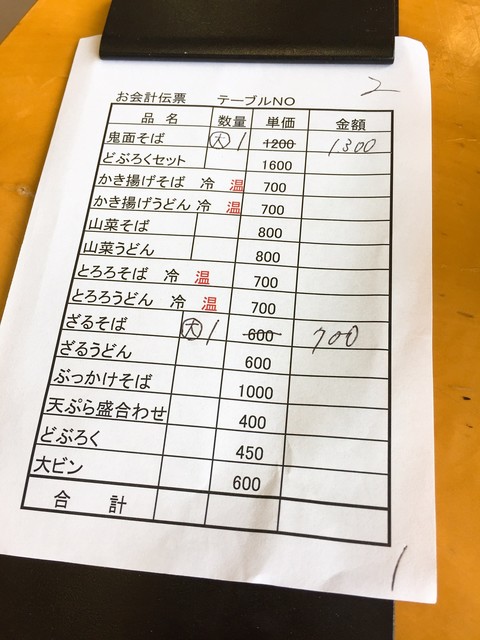 2
お会計伝票 テーブルNO
品名 数量 単価 金額
鬼面そば 大 1 1200 1300
どぶろくセット 1600
かき揚げそば 冷 温 700
かき揚げうどん 冷 温 700
山菜そば 800
山菜うどん 800
とろろそば 冷 温 700
とろろうどん 冷 温 700
ざるそば 大 1 600 700
ざるうどん 600
ぶっかけそば 1000
天ぷら盛合わせ 400
どぶろく 450
大ビン 600
合計
1